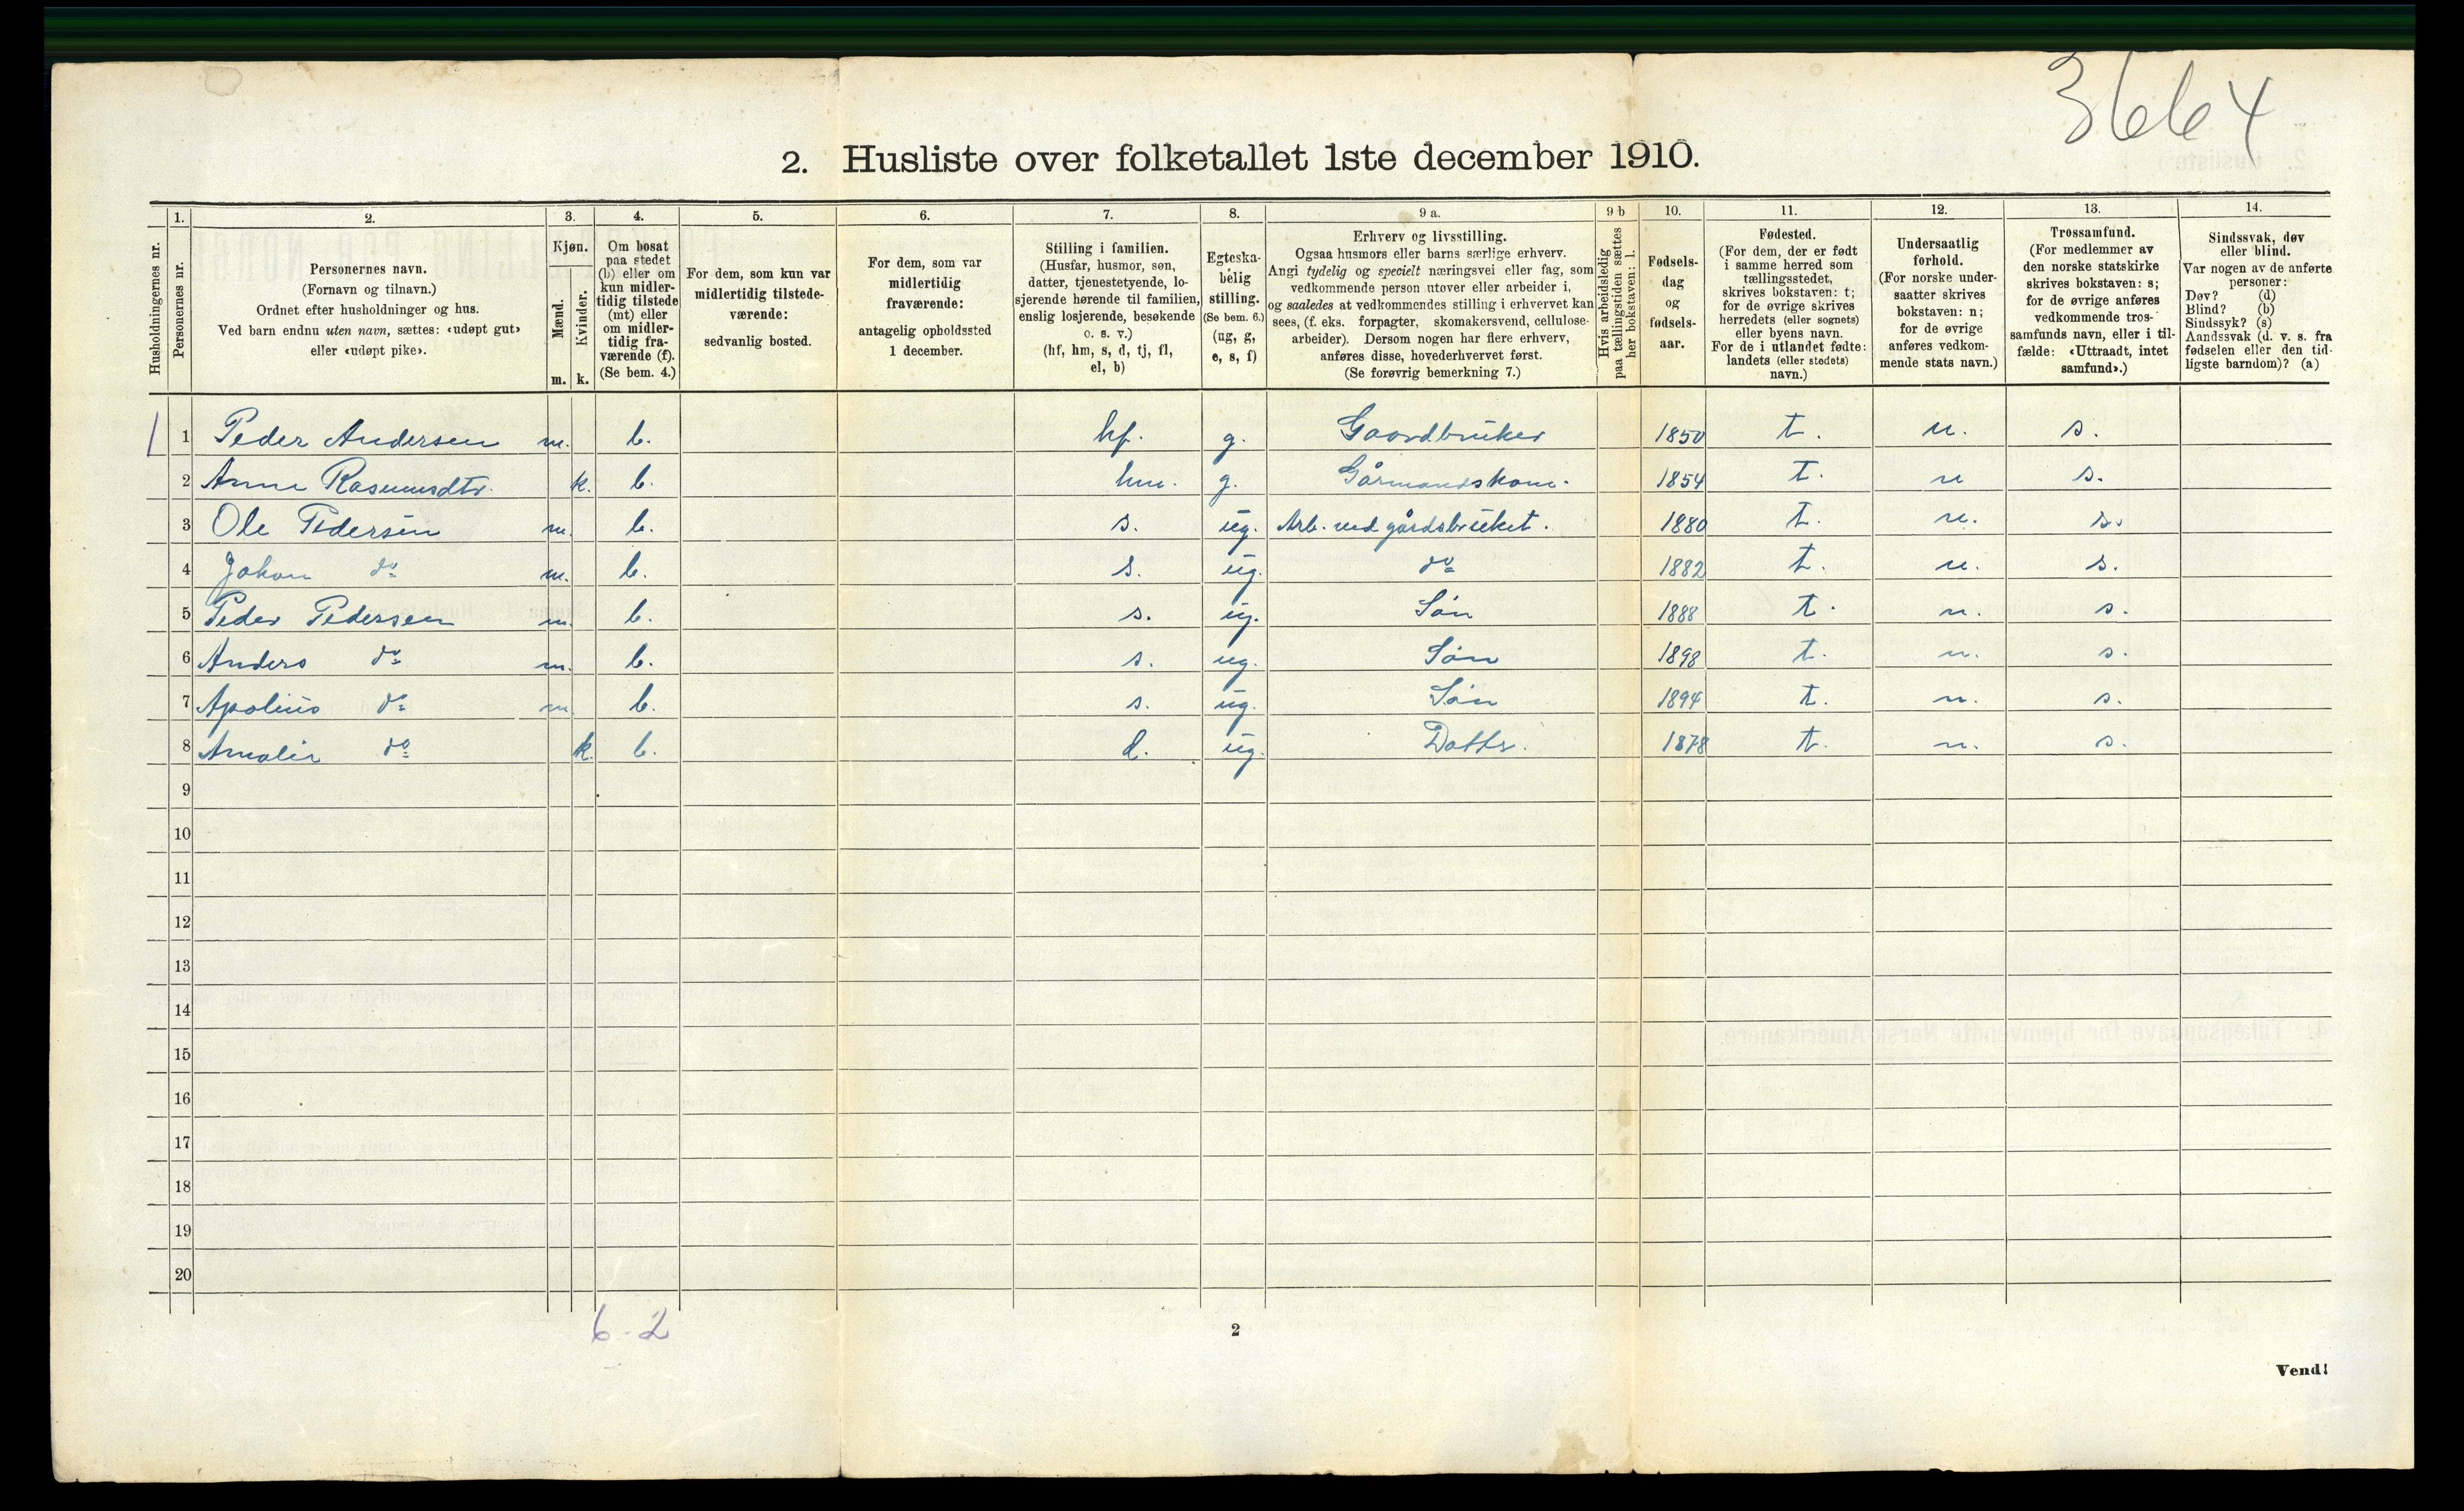 3664
2. Husliste over folketallet 1ste december 1910.
Husholdningernes nr.
1.
Personernes nr.
2.
Personernes navn.
(Fornavn og tilnavn.)
Ordnet efter husholdninger og hus.
Ved barn endnu uten navn, sættes: «udøpt gut»
eller «udøpt pike».
3.
Kjøn.
Mænd.
Kvinder.
m. k.
4.
Om bosat
paa stedet
(b) eller om
kun midler-
tidig tilstede
(mt) eller
om midler-
tidig fra-
værende (f).
(Se bem. 4.)
5.
For dem, som kun var
midlertidig tilstede-
værende:
sedvanlig bosted.
6.
For dem, som var
midlertidig
fraværende:
antagelig opholdssted
1 december.
7.
Stilling i familien.
(Husfar, husmor, søn,
datter, tjenestetyende, lo-
sjerende hørende til familien,
enslig losjerende, besøkende
o. s. v.)
(hf, hm, s, d, tj, fl,
el, b)
8.
Egteska-
belig
stilling.
(Se bem. 6.)
(ug, g,
e, s, f)
9 a.
Erhverv og livsstilling.
Ogsaa husmors eller barns særlige erhverv.
Angi tydelig og specielt næringsvei eller fag, som
vedkommende person utøver eller arbeider i,
og saaledes at vedkommendes stilling i erhvervet kan
sees, (f. eks. forpagter, skomakersvend, cellulose-
arbeider). Dersom nogen har flere erhverv,
anføres disse, hovederhvervet først.
(Se forøvrig bemerkning 7.)
9 b
Hvis arbeidsledig
paa tællingstiden sættes
her bokstaven: l.
10.
Fødsels-
dag
og
fødsels-
aar.
11.
Fødested.
(For dem, der er født
i samme herred som
tællingsstedet,
skrives bokstaven: t;
for de øvrige skrives
herredets (eller sognets)
eller byens navn.
For de i utlandet fødte:
landets (eller stedets)
navn.)
12.
Undersaatlig
forhold.
(For norske under-
saatter skrives
bokstaven: n;
for de øvrige
anføres vedkom-
mende stats navn.)
13.
Trossamfund.
(For medlemmer av
den norske statskirke
skrives bokstaven: s;
for de øvrige anføres
vedkommende tros-
samfunds navn, eller i til-
fælde: «Uttraadt, intet
samfund».)
14.
Sindssvak, døv
eller blind.
Var nogen av de anførte
personer:
Døv? (d)
Blind? (b)
Sindssyk? (s)
Aandssvak (d. v. s. fra
fødselen eller den tid-
ligste barndom)? (a)
1 1 Peder Andersen m. b. hf. g. Gaardbruker 1850 t. n. s.
2 Anne Rasmusdtr. k. b. hm. g. Gårmandskone. 1854 t. n s.
3 Ole Pedersen m. b. s. ug. Arb. ved gårdsbruket. 1880 t. n. s.
4 Johan do m. b. s. ug. do 1882 t. n. s.
5 Peder Pedersen m. b. s. ug. Søn 1888 t. n. s.
6 Anders do m. b. s. ug. Søn 1898 t. n. s.
7 Apolius do m. b. s. ug. Søn 1894 t. n. s.
8 Amalie do k. b. d. ug. Datter. 1878 t. n. s.
9
10
11
12
13
14
15
16
17
18
19
20
6-2
2
Vend!